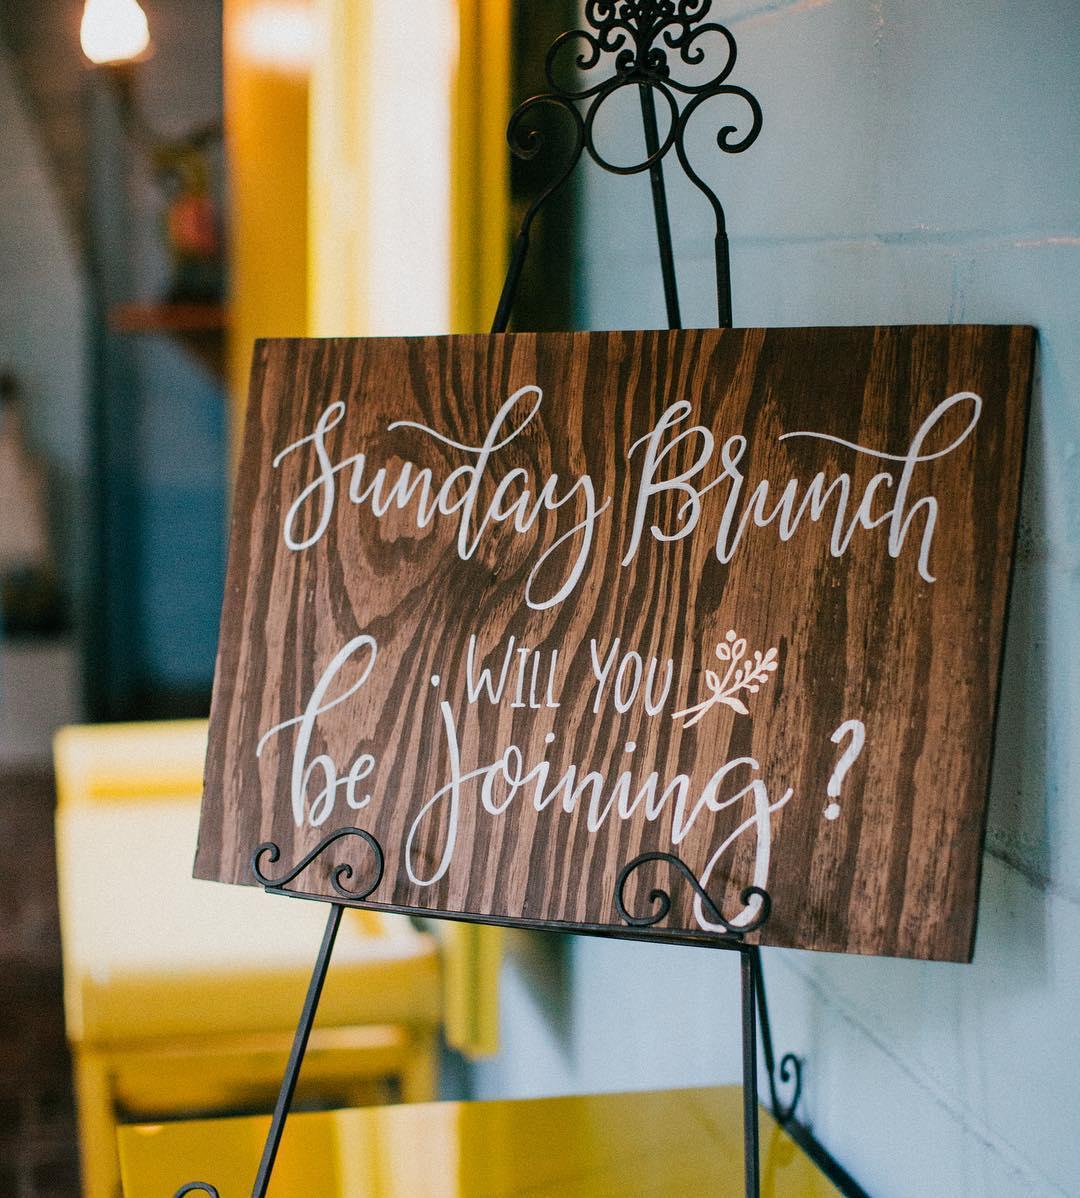 Sunday Brunch
WILL YOU
be joining?